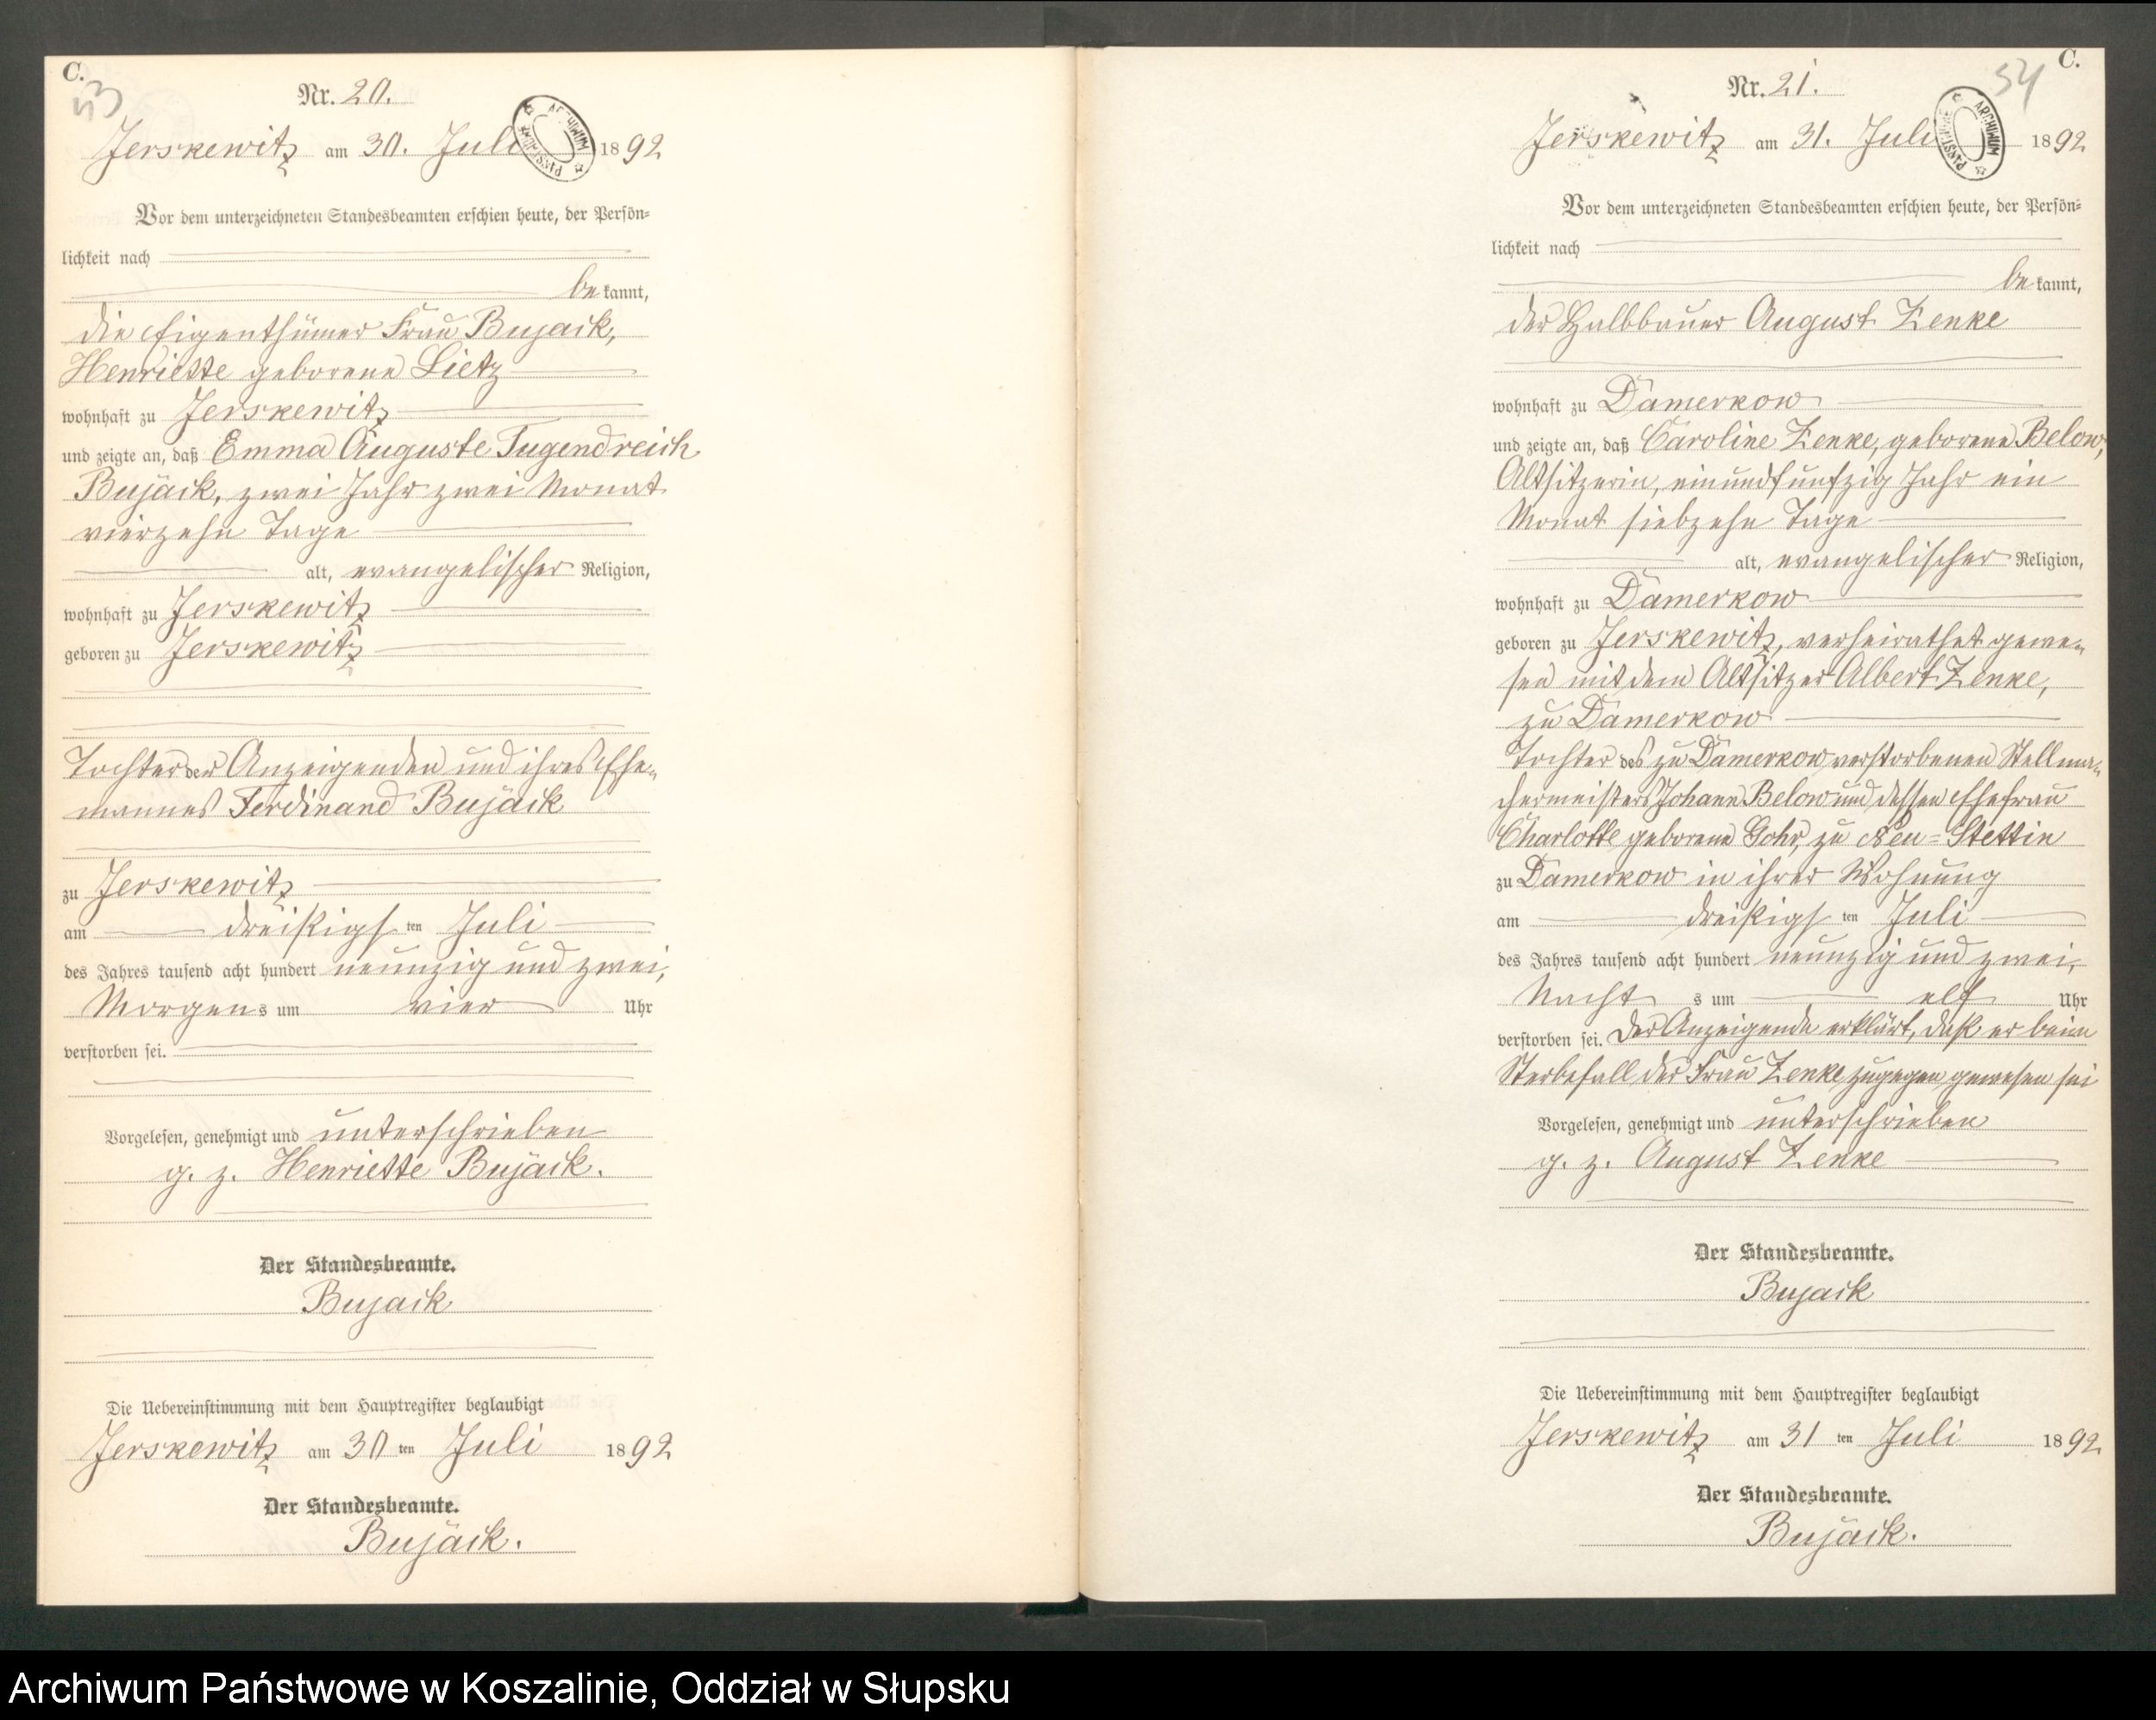 C.
53
Nr. 20.
Jerskewitz am 30. Juli 1892
Vor dem unterzeichneten Standesbeamten erschien heute, der Persön-
lichkeit nach
bekannt,
die Eigenthümer Frau Bujack,
Henriette geborene Lietz
wohnhaft zu Jerskewitz
und zeigte an, daß Emma Auguste Tugendreich
Bujack, zwei Jahr zwei Monat
vierzehn Tage
alt, evangelischer Religion,
wohnhaft zu Jerskewitz
geboren zu Jerskewitz
Tochter der Anzeigenden und ihres Ehe-
mannes Ferdinand Bujack
zu Jerskewitz
am dreißigsten Juli
des Jahres tausend acht hundert neunzig und zwei,
Morgens um vier Uhr
verstorben sei.
Vorgelesen, genehmigt und unterschrieben
g. z. Henriette Bujack.
Der Standesbeamte.
Bujack
Die Uebereinstimmung mit dem Hauptregister beglaubigt
Jerskewitz am 30 ten Juli 1892
Der Standesbeamte.
Bujack.
C.
54
Nr. 21.
Jerskewitz am 31. Juli 1892
Vor dem unterzeichneten Standesbeamten erschien heute, der Persön-
lichkeit nach
bekannt,
der Halbbauer August Zenke
wohnhaft zu Damerkow
und zeigte an, daß Caroline Zenke, geborene Below,
Altsitzerin, einundfunfzig Jahr ein
Monat siebzehn Tage
alt, evangelischer Religion,
wohnhaft zu Damerkow
geboren zu Jerskewitz, verheirathet gewe-
sen mit dem Altsitzer Albert Zenke,
zu Damerkow
Tochter des zu Damerkow verstorbenen Stellma-
chermeisters Johann Below und dessen Ehefrau
Charlotte geborene Gohr, zu Neu-Stettin
zu Damerkow in ihrer Wohnung
am dreißigsten Juli
des Jahres tausend acht hundert neunzig und zwei,
Nachts um elf Uhr
verstorben sei. Der Anzeigende erklärt, daß er beim
Sterbefall der Frau Zenke zugegen gewesen sei
Vorgelesen, genehmigt und unterschrieben
g. z. August Zenke
Der Standesbeamte.
Bujack
Die Uebereinstimmung mit dem Hauptregister beglaubigt
Jerskewitz am 31 ten Juli 1892
Der Standesbeamte.
Bujack.
Archiwum Państwowe w Koszalinie, Oddział w Słupsku